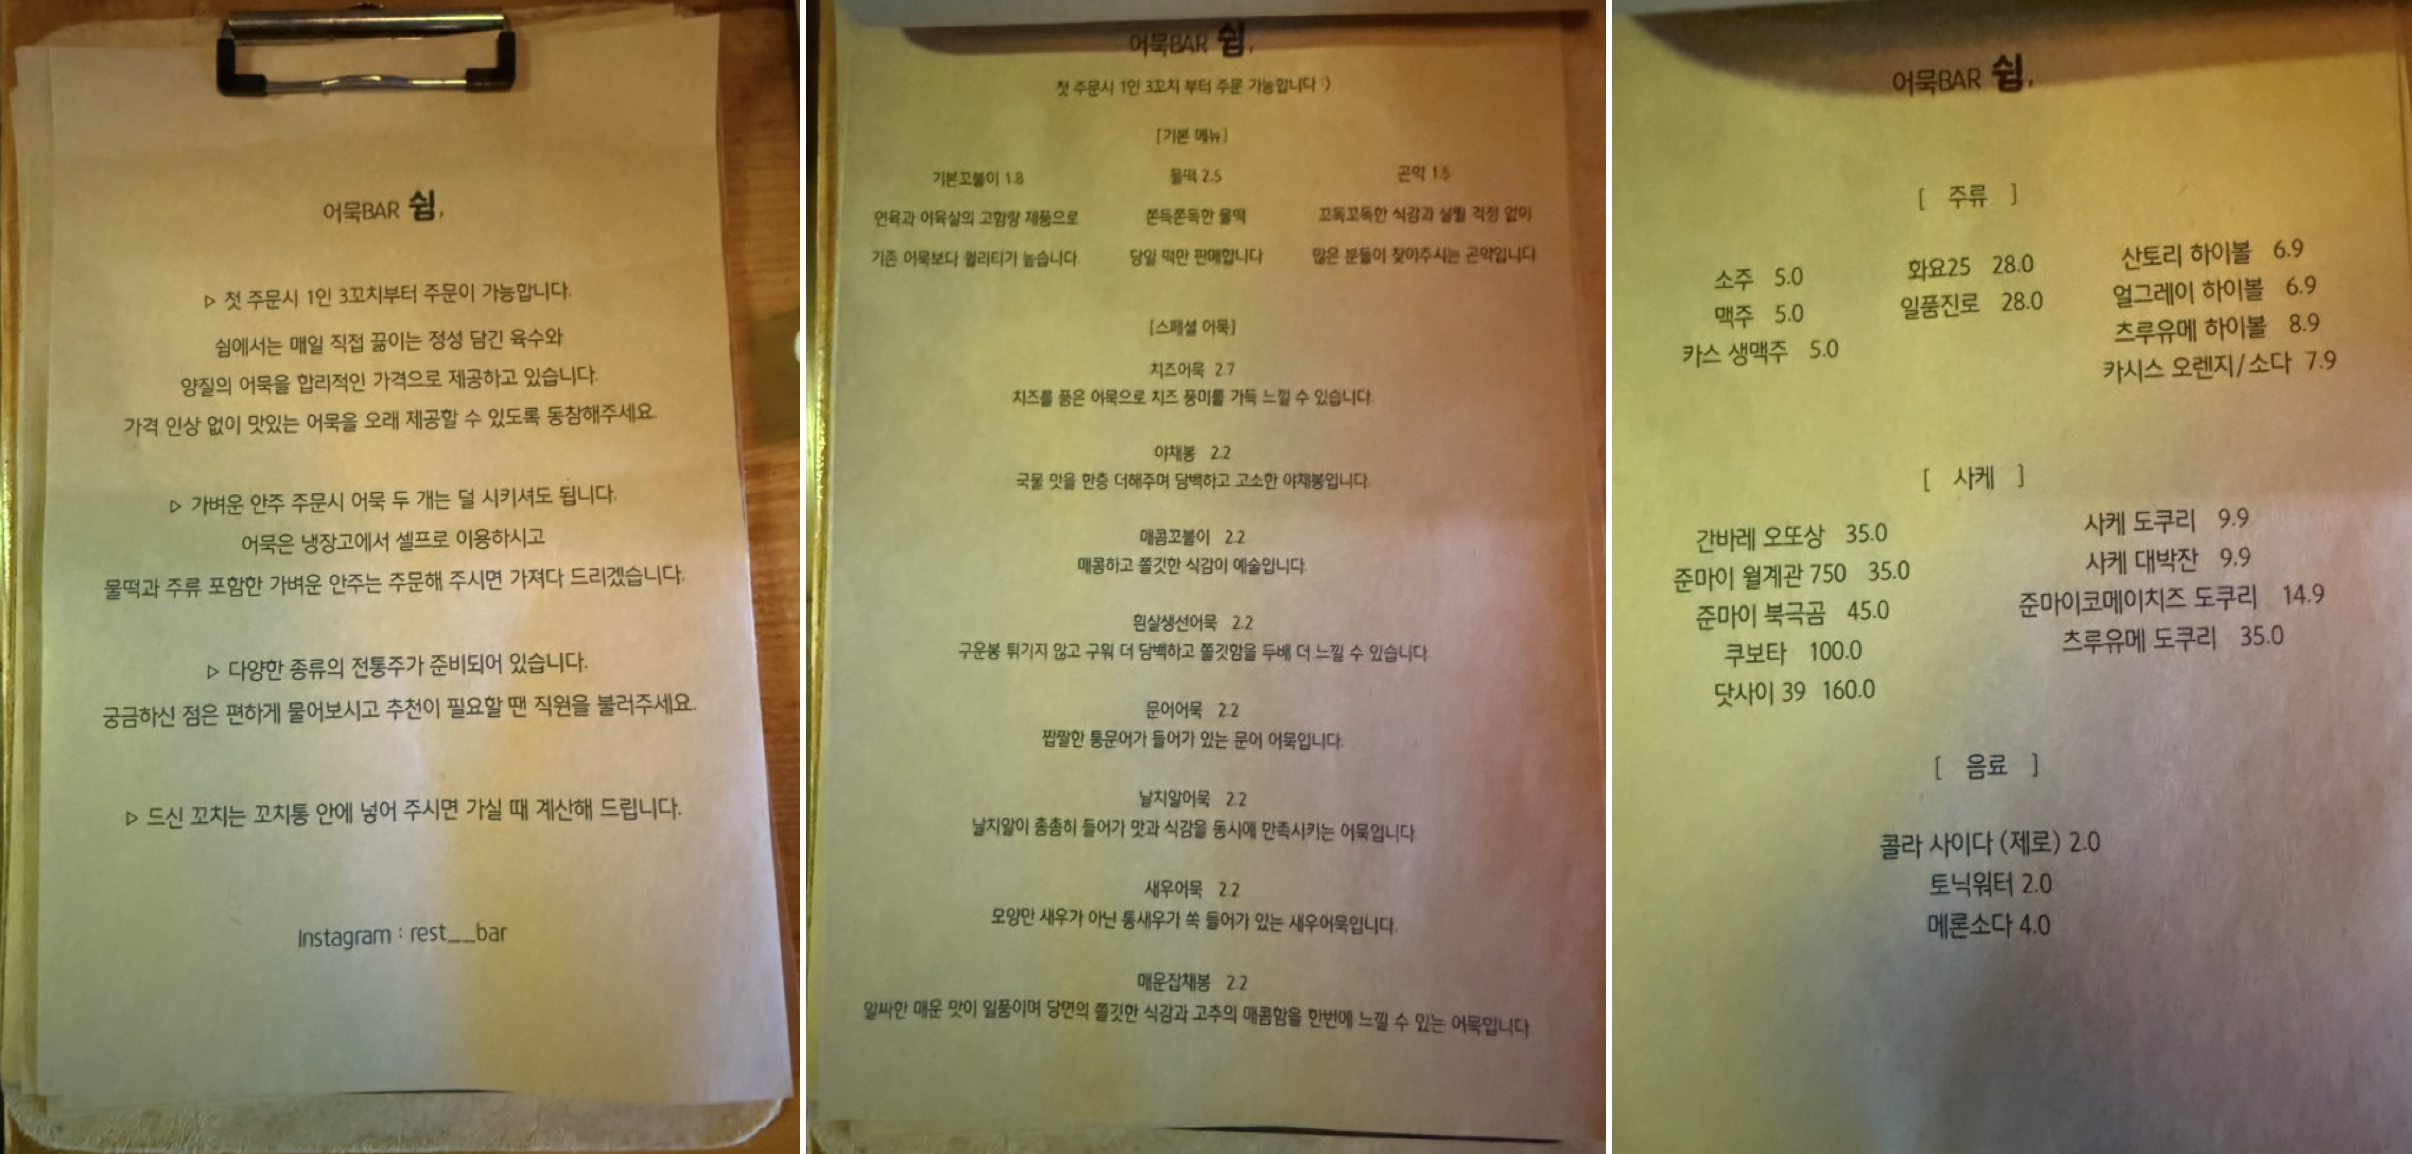 어묵BAR 쉼,
▷ 첫 주문시 1인 3꼬치부터 주문이 가능합니다.
쉼에서는 매일 직접 끓이는 정성 담긴 육수와
양질의 어묵을 합리적인 가격으로 제공하고 있습니다.
가격 인상 없이 맛있는 어묵을 오래 제공할 수 있도록 동참해주세요.
▷ 가벼운 안주 주문시 어묵 두 개는 덜 시키셔도 됩니다.
어묵은 냉장고에서 셀프로 이용하시고
물떡과 주류 포함한 가벼운 안주는 주문해 주시면 가져다 드리겠습니다.
▷ 다양한 종류의 전통주가 준비되어 있습니다.
궁금하신 점은 편하게 물어보시고 추천이 필요할 땐 직원을 불러주세요.
▷ 드신 꼬치는 꼬치통 안에 넣어 주시면 가실 때 계산해 드립니다.
Instagram : rest__bar
어묵BAR 쉼,
첫 주문시 1인 3꼬치 부터 주문 가능합니다 :)
[기본 메뉴]
기본꼬불이 1.8 물떡 2.5 곤약 1.5
연육과 어육살의 고함량 제품으로 쫀득쫀득한 물떡 꼬독꼬독한 식감과 살찔 걱정 없이
기존 어묵보다 퀄리티가 높습니다. 당일 떡만 판매합니다 많은 분들이 찾아주시는 곤약입니다.
[스페셜 어묵]
치즈어묵 2.7
치즈를 품은 어묵으로 치즈 풍미를 가득 느낄 수 있습니다.
야채봉 2.2
국물 맛을 한층 더해주며 담백하고 고소한 야채봉입니다.
매콤꼬불이 2.2
매콤하고 쫄깃한 식감이 예술입니다.
흰살생선어묵 2.2
구운봉 튀기지 않고 구워 더 담백하고 쫄깃함을 두배 더 느낄 수 있습니다.
문어어묵 2.2
짭짤한 통문어가 들어가 있는 문어 어묵입니다.
날치알어묵 2.2
날치알이 촘촘히 들어가 맛과 식감을 동시에 만족시키는 어묵입니다.
새우어묵 2.2
모양만 새우가 아닌 통새우가 쏙 들어가 있는 새우어묵입니다.
매운잡채봉 2.2
알싸한 매운 맛이 일품이며 당면의 쫄깃한 식감과 고추의 매콤함을 한번에 느낄 수 있는 어묵입니다
어묵BAR 쉼,
[ 주류 ]
소주 5.0 화요25 28.0 산토리 하이볼 6.9
맥주 5.0 일품진로 28.0 얼그레이 하이볼 6.9
카스 생맥주 5.0 츠루유메 하이볼 8.9
카시스 오렌지/소다 7.9
[ 사케 ]
간바레 오또상 35.0 사케 도쿠리 9.9
준마이 월계관 750 35.0 사케 대박잔 9.9
준마이 북극곰 45.0 준마이코메이치즈 도쿠리 14.9
쿠보타 100.0 츠루유메 도쿠리 35.0
닷사이 39 160.0
[ 음료 ]
콜라 사이다 (제로) 2.0
토닉워터 2.0
메론소다 4.0